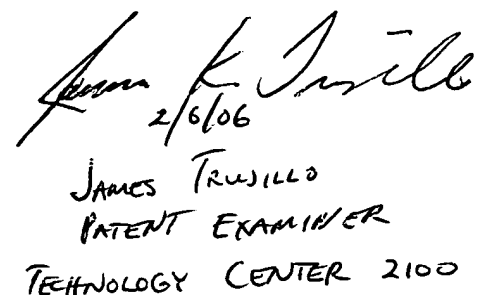 James K Trujillo
2/6/06
JAMES TRUJILLO
PATENT EXAMINER
TECHNOLOGY CENTER 2100